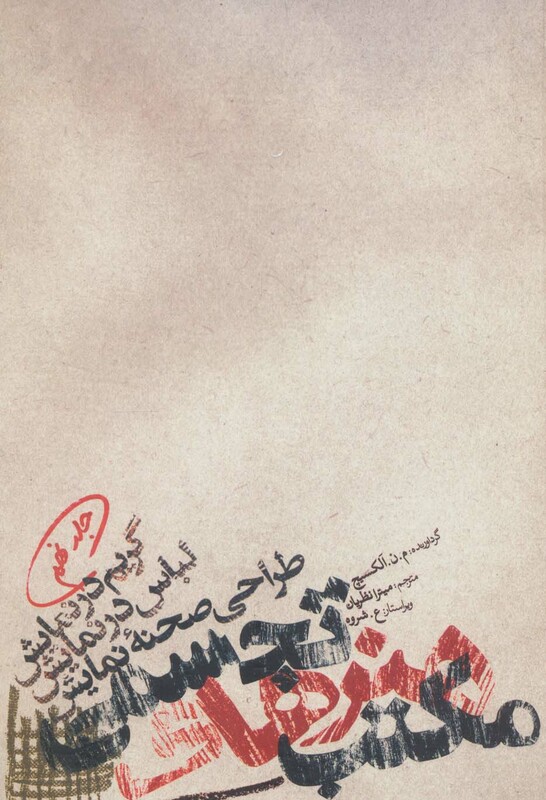 مکتب
هنرهای
تجسمی
طراحی صحنهٔ نمایش
لباس در نمایش
گریم در نمایش
جلد نهم
گردآورنده: م.ن. آلکسیچ
مترجم: میترا نظریان
ویراستار: ع. شروه